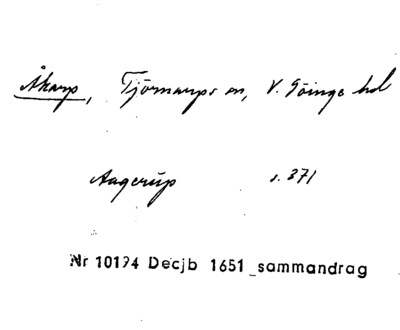 Åkarp, Tjörnarps sn, V. Göinge hd
Aagerup s. 371
Nr 10194 Decjb 1651 sammandrag